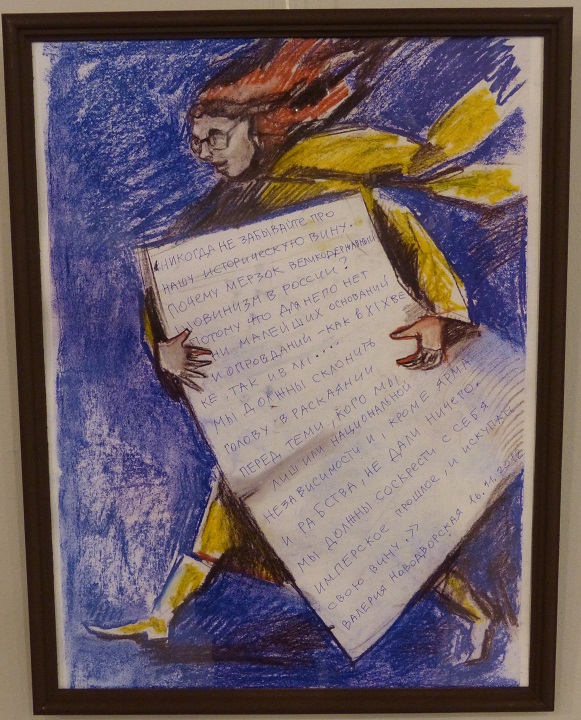 «НИКОГДА НЕ ЗАБЫВАЙТЕ ПРО
НАШУ ИСТОРИЧЕСКУЮ ВИНУ.
ПОЧЕМУ МЕРЗОК ВЕЛИКОДЕРЖАВНЫЙ
ШОВИНИЗМ В РОССИИ?
ПОТОМУ ЧТО ДЛЯ НЕГО НЕТ
НИ МАЛЕЙШИХ ОСНОВАНИЙ
И ОПРОВДАНИЙ – КАК В XIX ВЕ
КЕ, ТАК И В
МЫ ДОЛЖНЫ СКЛОНИТЬ
ГОЛОВУ В РАСКАЯНИИ
ПЕРЕД ТЕМИ, КОГО МЫ
ЛИШИЛИ НАЦИОНАЛЬНОЙ
НЕЗАВИСИМОСТИ И, КРОМЕ ЯРМА
И РАБСТВА, НЕ ДАЛИ НИЧЕГО.
МЫ ДОЛЖНЫ СОСКРЕСТИ С СЕБЯ
ИМПЕРСКОЕ ПРОШЛОЕ, И ИСКУПАТЬ
СВОЮ ВИНУ.»
ВАЛЕРИЯ НОВОДВОРСКАЯ 16.11.